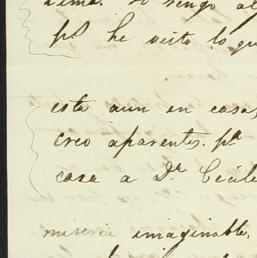 Lima. Yo tengo al
pª he visto lo qu
esta aun en casa,
creo aparentes. pª
casa a Dª Cecile
miseria imaginable.